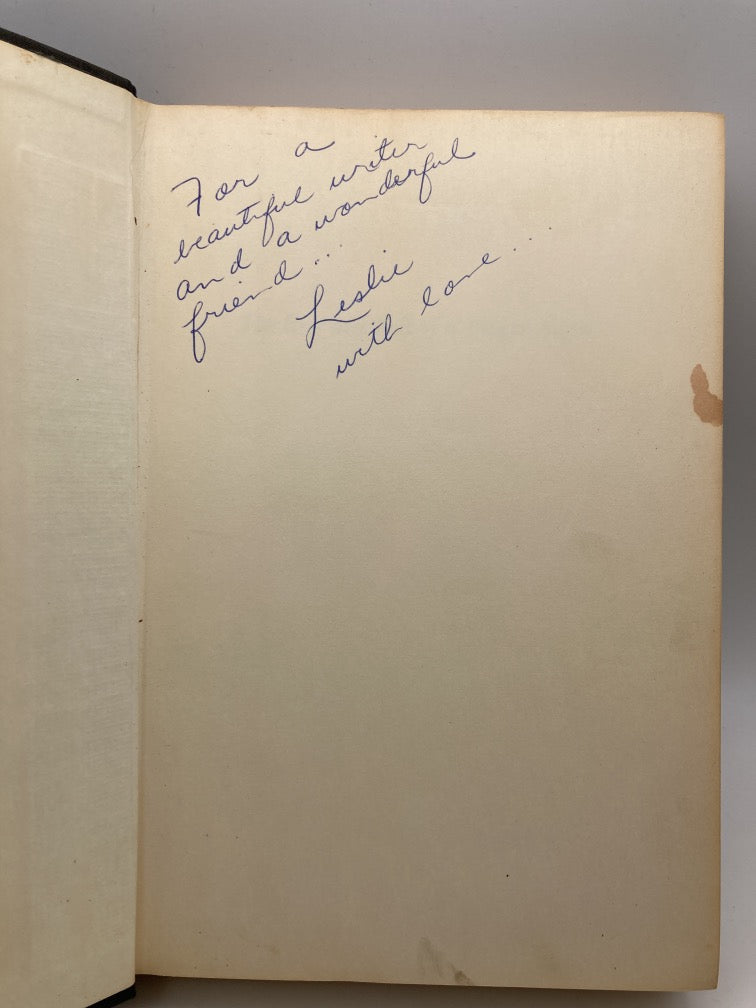 For a
beautiful writer
and a wonderful
friend...
Leslie
with love...